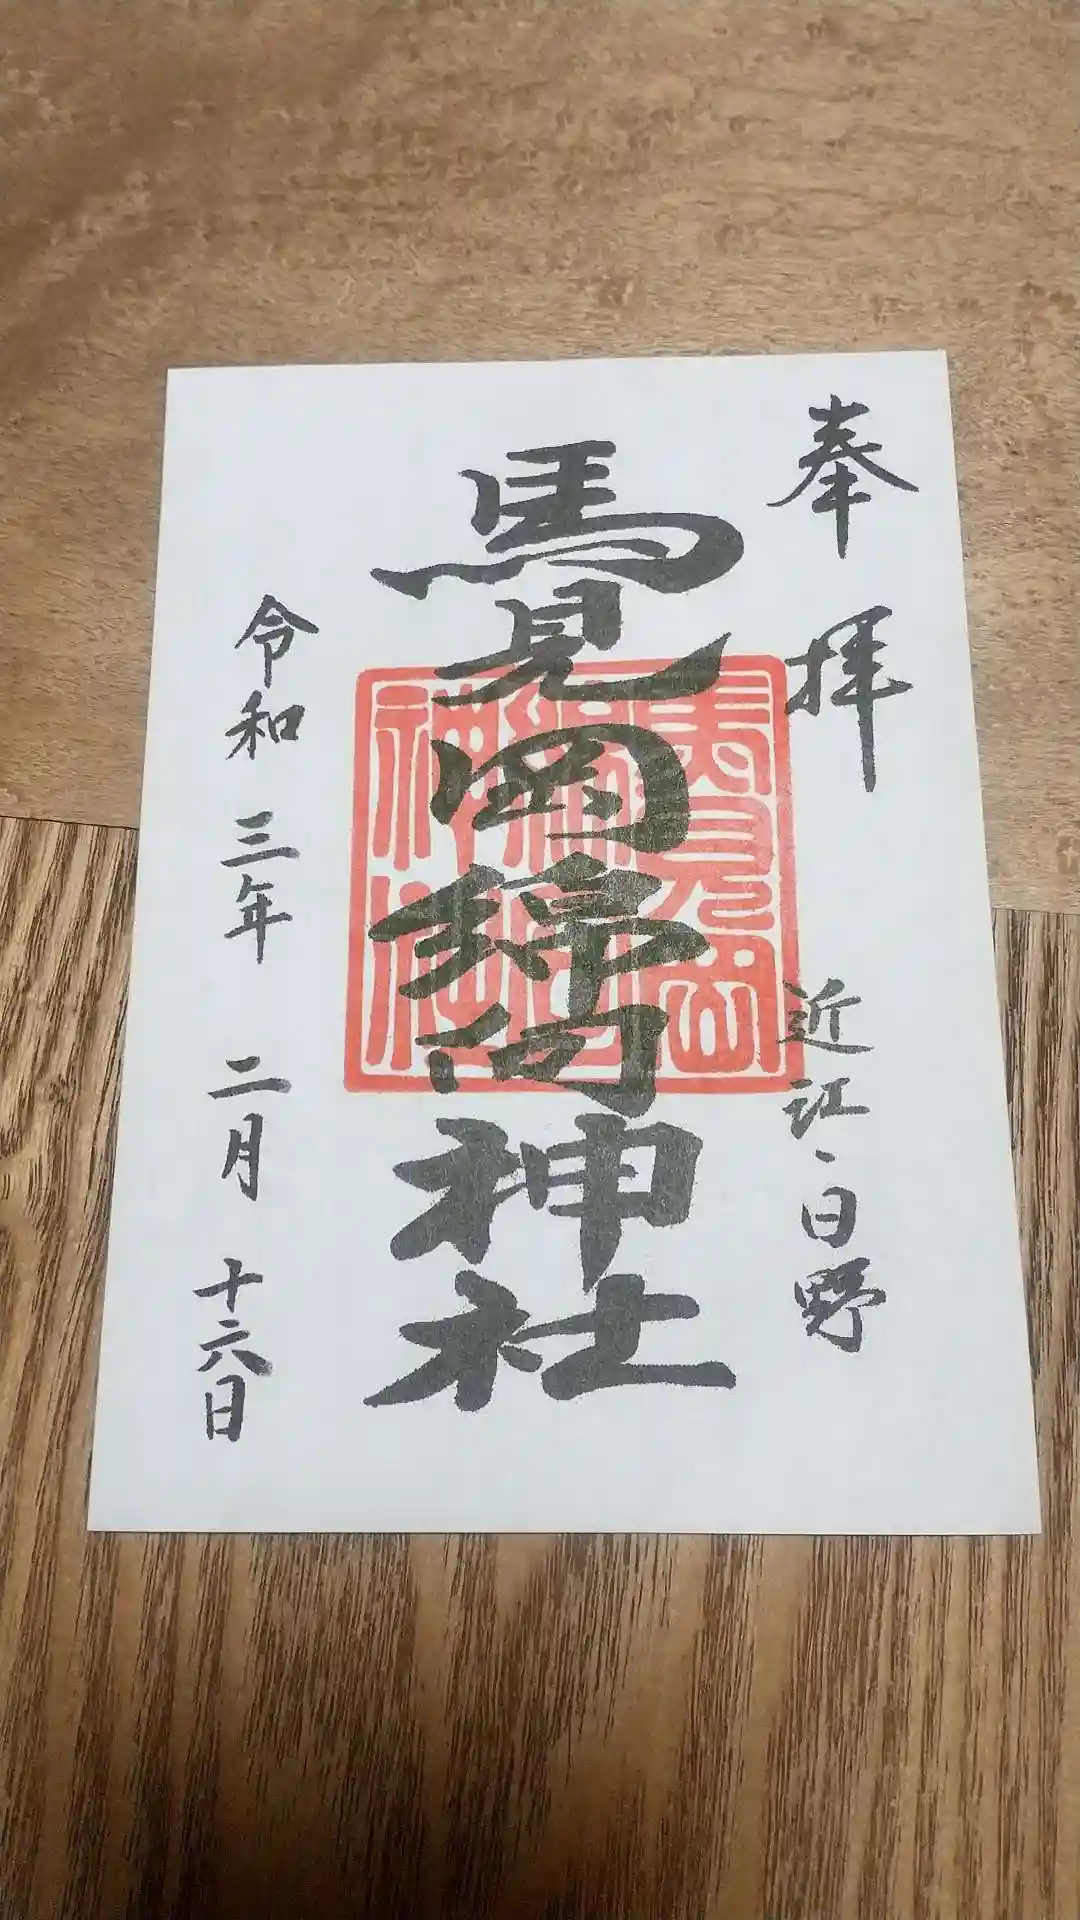 奉拝
近江・日野
馬見岡綿向神社
令和三年 二月 十六日
馬見岡
綿向
神社